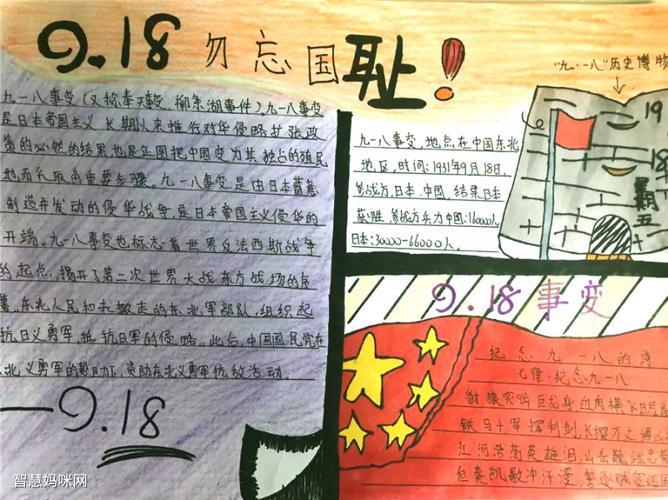 9.18 勿忘国耻!
九一八事变(又称奉天事变、柳条湖事件)。九一八事变
是日本帝国主义长期以来推行对华侵略扩张政
策的必然的结果也是企图把中国变为其独占的殖民
地而采取的重要步骤。九一八事变是由日本蓄意
制造并发动的侵华战争,是日本帝国主义侵华的
开端。九一八事变也标志着世界反法西斯战争
的起点,揭开了第二次世界大战东方战场的序
幕。东北人民和未撤走的东北军部队,组织起
抗日义勇军抵抗日军的侵略。此后,中国国民党在
东北义勇军的帮助下,资助东北义勇军抗敌活动。
9.18
"九·一八"历史博物
19
18
九一八事变,地点在中国东北
地区,时间:1931年9月18日,
参战方,日本、中国,结果日本
获胜,参战方兵力中国:160000人,
日本:30000-66000人。
9.18事变
纪念九一八的诗
七律·纪念九一八
豺狼突啮巨龙身,血肉横飞日月
铁马千军挥利剑,长缨万丈缚
江河浩荡英雄泪,山岳巍
但奏凯歌冲汗漫
智慧妈咪网